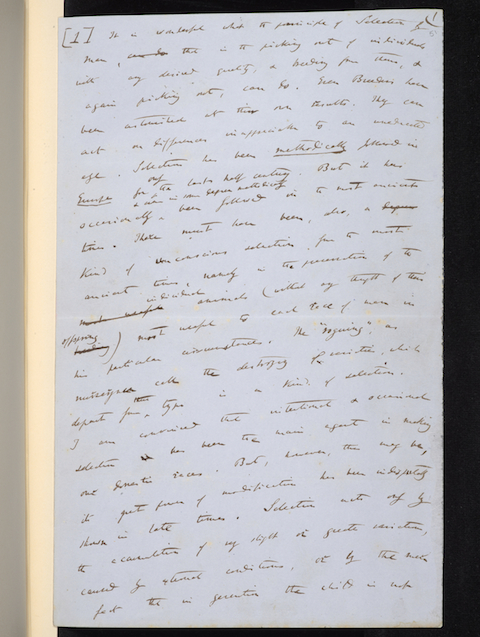 [1] It is wonderful what the principle of Selection by
man, that is the picking out of individuals
with any desired quality, & breeding from them, &
again picking out, can do. Even Breeders have
been astounded at their own results. They can
act on differences inappreciable to an uneducated
eye. Selection has been methodically followed in
Europe for only the last half century. But it has
occasionally & even in some degree methodically been followed in the most ancient
times. There must have been, also, a
kind of unconscious selection from the most
ancient times, namely in the preservation of the
individual animals (without any thought of their
offspring) most useful to each race of man in
his particular circumstances. The "roguing", as
nurserymen call the destroying of varieties, which
depart from their type, is a kind of selection.
I am convinced that intentional & occasional
selection has been the main agent in making
our domestic races. But, however, this may be,
its great power of modification has been indisputably
shown in late times. Selection acts only by
the accumulation of very slight or greater variations,
caused by external conditions, or by the mere
fact that in generation the child is not